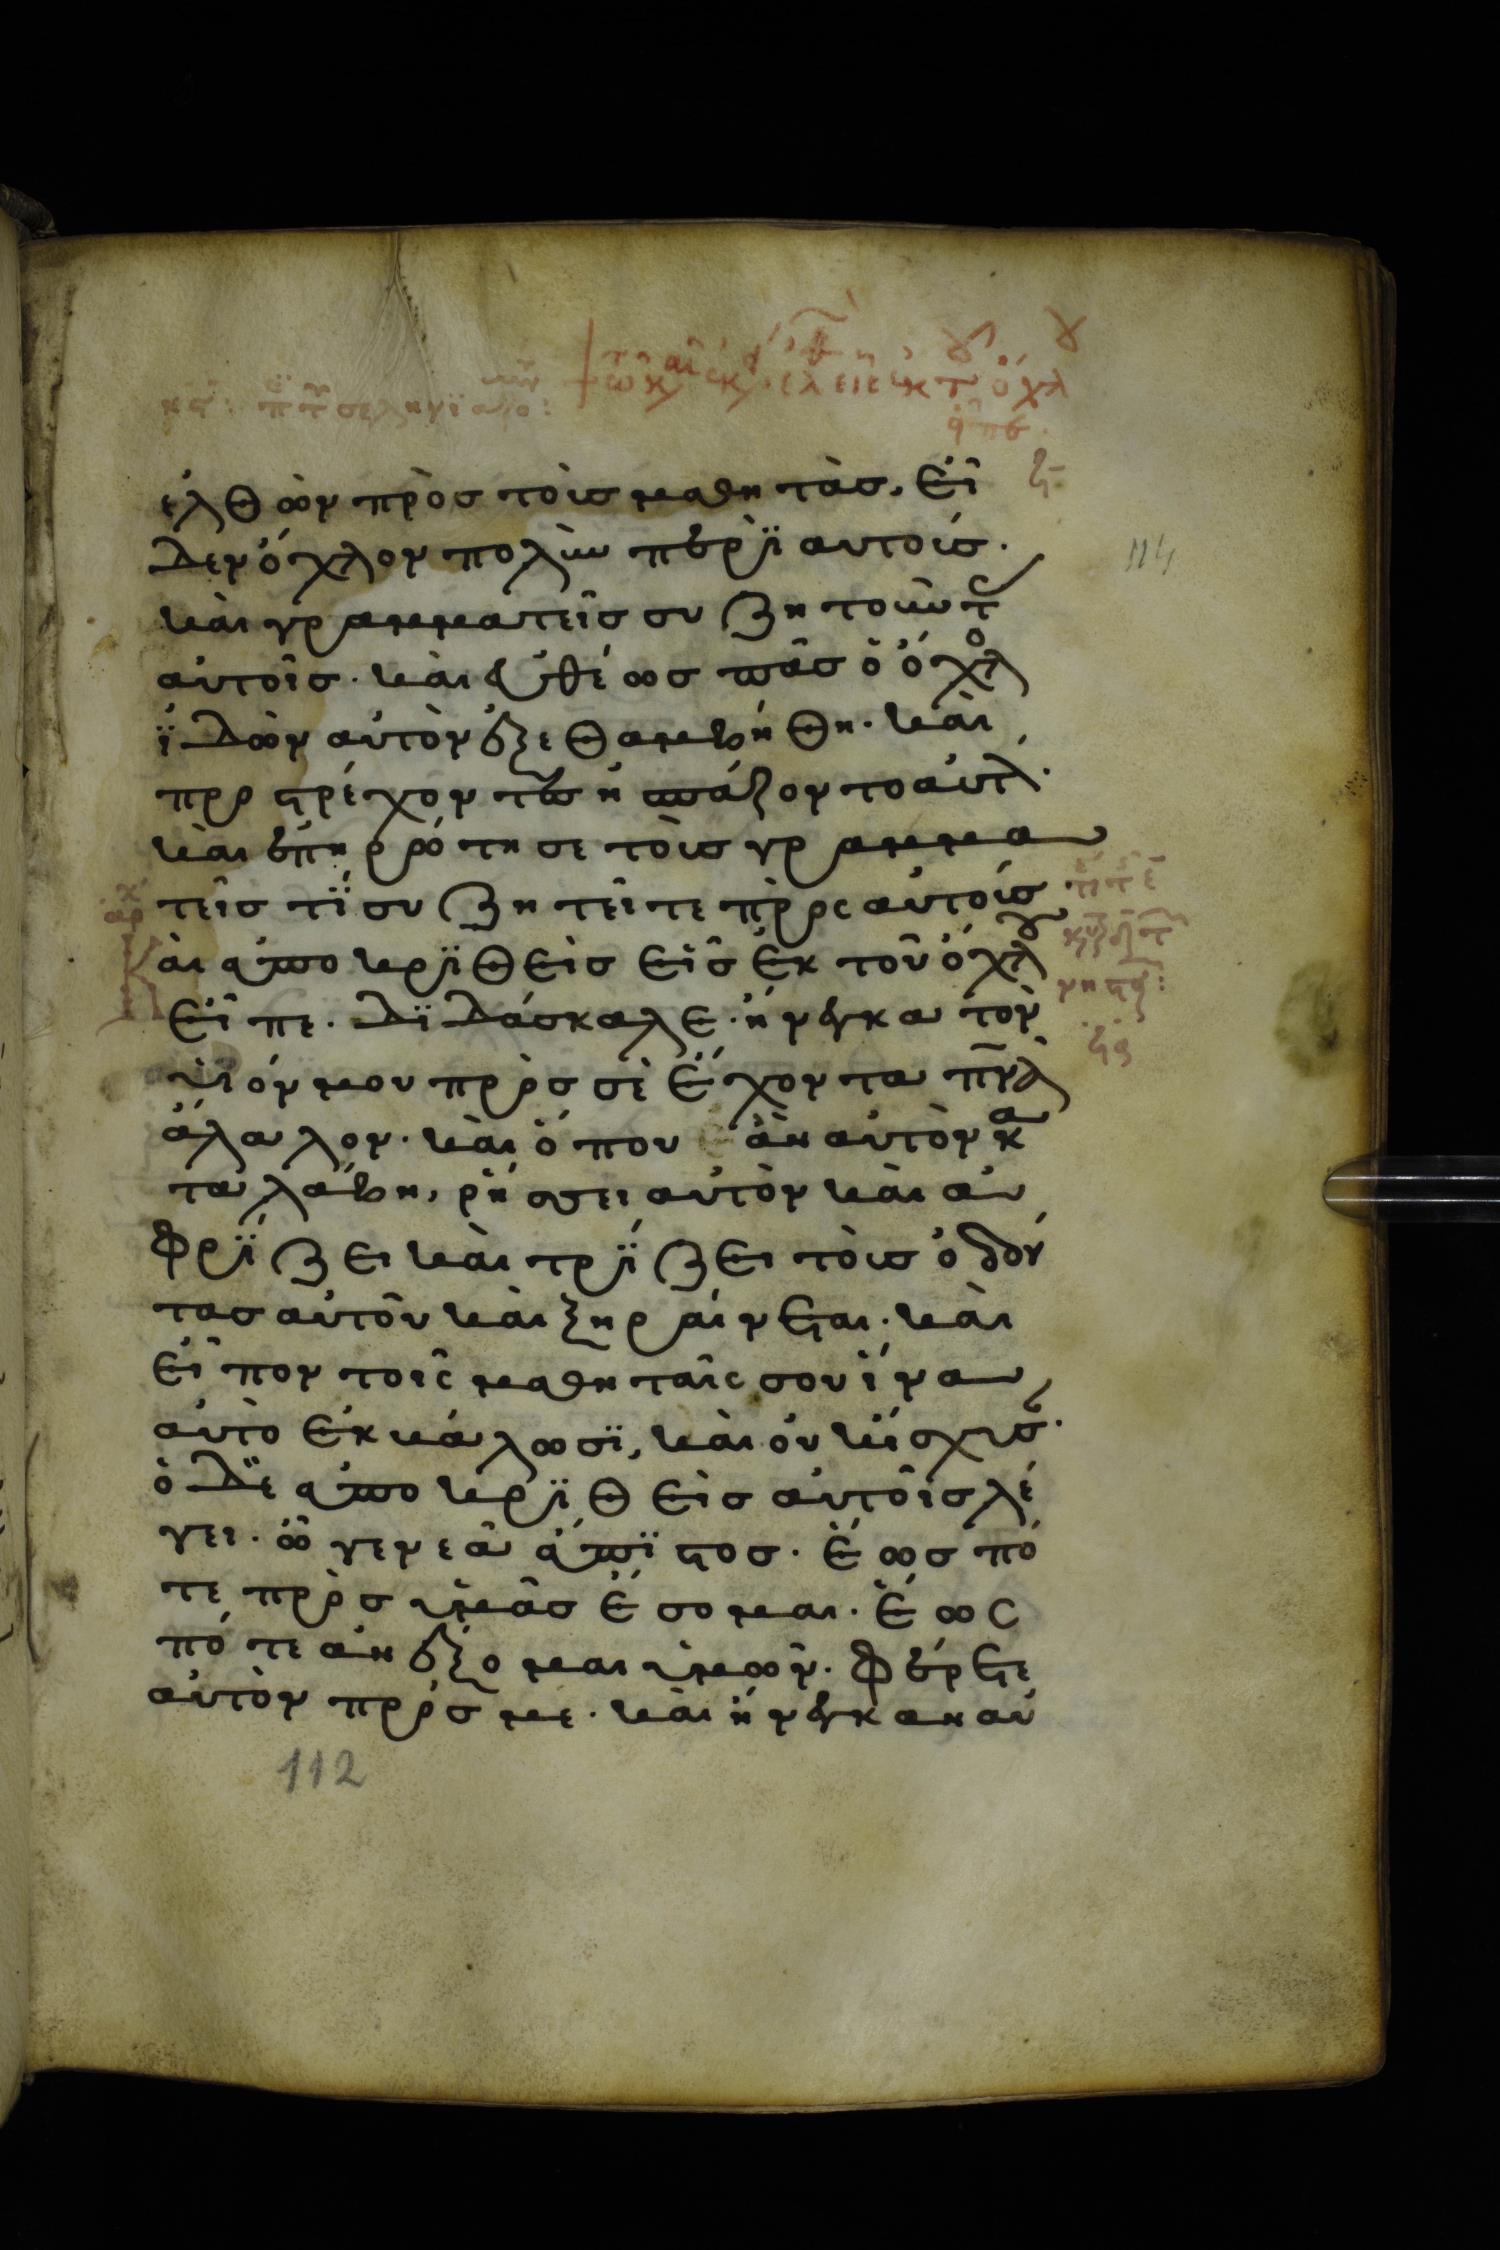 ἐλθὼν πρὸς τοὺς μαθητὰς, εἶ
δεν ὄχλον πολὺν περὶ αυτούς.
καὶ γραμματεῖς συζητοῦντ
αὐτοῖς. καὶ εὐθέως πᾶς ὁ ὄχλο
ϊδὼν αὐτὸν ἐξεθαμβήθη. καὶ
προστρέχοντες ἠσπάζοντο αὐτὸ.
καὶ ἐπηρώτησε τοὺς γραμμα
τεῖς τί συζητεῖτε πρὸς αὐτούς
καὶ ἀποκριθεὶς εἷς ἐκ τοῦ ὄχλου
εἶπε. διδάσκαλε. ἤνεγκα τὸν
υἱόν μου πρὸς σὲ ἔχοντα πνα
ἄλαλον. καὶ ὅπου ἂν αὐτὸν κα
ταλάβη, ρήσσει αὐτὸν καὶ ἀ
φρίζει καὶ τρίζει τοὺς ὀδόν
τας αὐτοῦ καὶ ξηραίνεται. καὶ
εἶπον τοῖς μαθηταῖς σου ἵνα
αὐτὸ ἐκβάλωσϊ, καὶ οὐκ ἴσχυσ.
ὁ δὲ ἀποκριθεὶς αὐτοῖς λέ
γει. ὦ γενεὰ ἄπιστος. ἕως πό
τε πρὸς ὑμᾶς ἔσομαι. ἕως
πότε ἀνέξομαι ὑμῶν. φέρετε
αὐτὸν πρός με. καὶ ἤνεγκαν αὐ
112
114